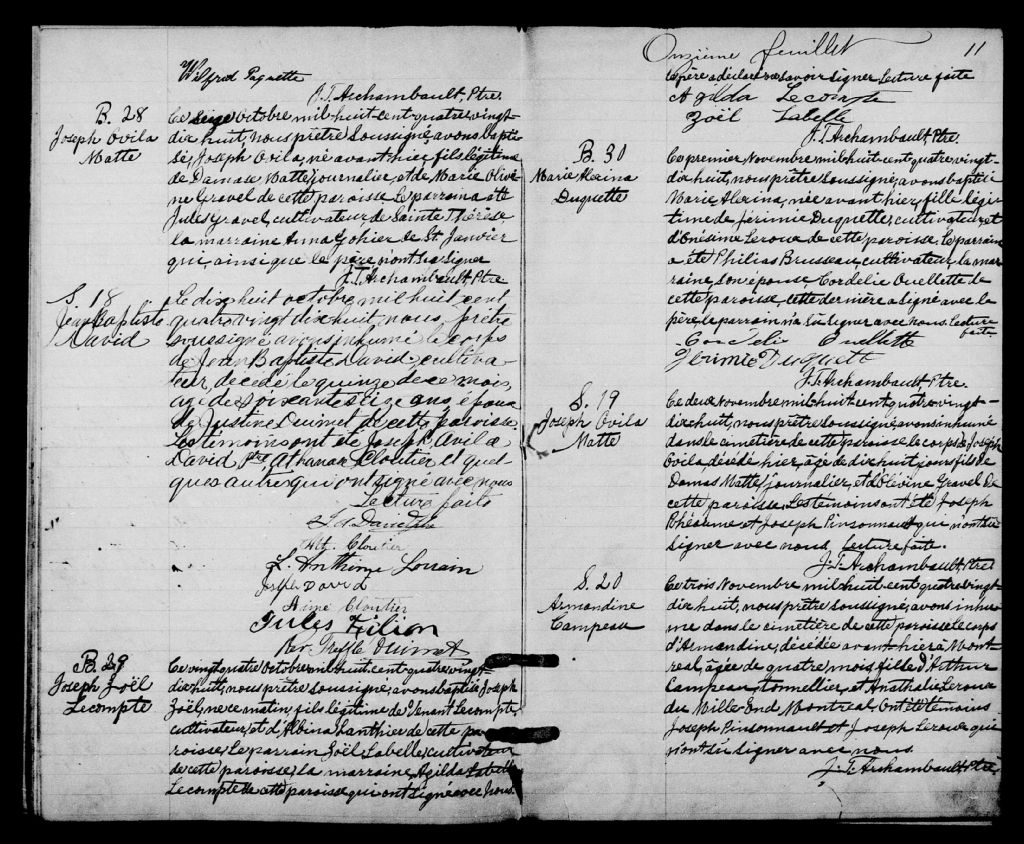 Wilfrid Paquette
J.T. Archambault, Ptre.
B. 28
Joseph Ovila
Matte
Ce seize Octobre mil-huit-cent-quatre vingt-
dix huit, nous prêtre soussigné, avons bapti-
sé, Joseph Ovila, né avant hier fils légitime
de Damase Matte, journalier, et de Marie Olivi-
ne Gravel de cette paroisse. Le parrain a été
Jules Gravel, cultivateur, de Sainte Thérèse
la marraine Anna Gohier de St. Janvier
qui, ainsi que le père, n'ont su signer
J.T. Archambault, Ptre
S. 18
Jean Baptiste
David
Le dix huit octobre mil huit cent
quatre vingt dix huit, nous, prêtre
soussigné avons inhumé le corps
de Jean Baptiste David, cultiva-
teur, décédé le quinze de ce mois,
agé de soixante seize ans, époux
de Justine Ouimet de cette paroisse
Les témoins ont été Joseph, Avila
David Ptre Athanase Cloutier et quel-
ques autres qui ont signé avec nous
Lecture faite
J A David Ptre
Ath. Cloutier
L. Anthime Lorrain
Joseph David
Aimé Cloutier
Jules Filion
Treffle Ouimet
B. 29
Joseph Zoël
Lecompte
Ce vingt quatre octobre mil huit-cent-quatre vingt-
dix huit, nous prêtre soussigné, avons baptisé Joseph
Zoël, né ce matin, fils légitime de Venant Lecompte,
cultivateur, et d'Albina Lanthier de cette pa-
roisse, Le parrain Zoël Labelle, cultivateur
de cette paroisse, La marraine, Azilda Labelle
Lecompte de cette paroisse qui ont signé avec Nous
Onzième feuillet 11
Le père a déclaré ne savoir signer Lecture faite
Azilda Lecompte
Zoël Labelle
J.T. Archambault, Ptre.
B. 30
Marie Alexina
Duquette
Ce premier Novembre mil huit-cent quatre vingt-
dix huit, nous prêtre soussigné, avons baptisé
Marie Alexina, née avant hier, fille légi-
time de Jérémie Duquette, cultivateur, et
d'Onésime Leroux de cette paroisse. Le parrain
a été Philias Brusseau, cultivateur, la mar
raine, son épouse Cordélie Ouellette de
cette paroisse, cette dernière a signé avec la
père, le parrain n'a su signer avec nous Lecture
faite.
Cordelie Ouellette
Jérimie Duquett
J.T. Archambault, Ptre.
S. 19
Joseph Ovila
Matte
Ce deux Novembre, mil-huit-cent quatre-vingt-
dix huit, nous prêtre soussigné, avons inhumé
dans le cimetière de cette paroisse le corps de Joseph
Ovila, désédé hier, âgé de dix huit jours, fils de
Damas Matte, journalier, et d'Olévine Gravel de
cette paroisse. Les témoins ont été Joseph
Rhéaume et Joseph Pinsonnault qui n'ont su
signer avec nous Lecture faite.
J.T. Archambault, Ptre
S. 20
Armandine
Campeau
Ce trois Novembre mil huit-cent-quatre vingt-
dix huit, nous prêtre soussigné, avons inhu
mé dans le cimetière de cette paroisse le corps
d'Armandine, désédée avant hier à Mont
real, âgée de quatre mois, fille d'Arthur
Campeau, tonnellier, et Anathalie Leroux
du Mille End Montréal. Ont été témoins
Joseph Pinsonnault et Joseph Leroux qui
n'ont su signer avec nous.
J.T. Archambault, Ptre.